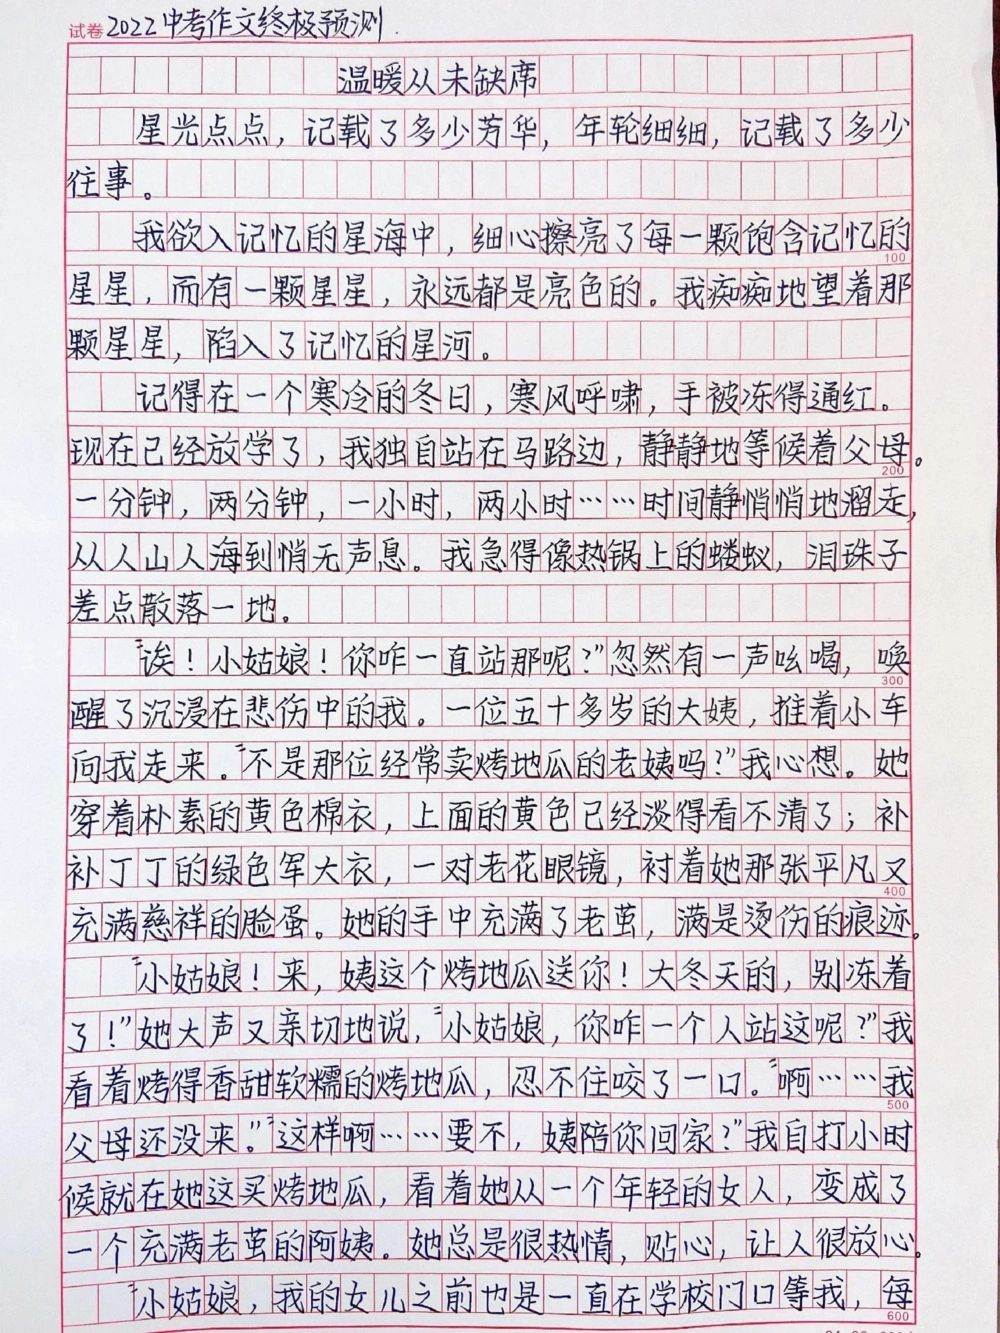 试卷 2022中考作文终极预测.
温暖从未缺席
星光点点，记载了多少芳华，年轮细细，记载了多少
往事。
我欲入记忆的星海中，细心擦亮了每一颗饱含记忆的
100
星星，而有一颗星星，永远都是亮色的。我痴痴地望着那
颗星星，陷入了记忆的星河。
记得在一个寒冷的冬日，寒风呼啸，手被冻得通红。
现在已经放学了，我独自站在马路边，静静地等候着父母。
200
一分钟，两分钟，一小时，两小时……时间静悄悄地溜走，
从人山人海到悄无声息。我急得像热锅上的蝼蚁，泪珠子
差点散落一地。
“诶！小姑娘！你咋一直站那呢？”忽然有一声吆喝，唤
300
醒了沉浸在悲伤中的我。一位五十多岁的大姨，推着小车
向我走来。“不是那位经常卖烤地瓜的老姨吗？”我心想。她
穿着朴素的黄色棉衣，上面的黄色已经淡得看不清了；补
补丁丁的绿色军大衣，一对老花眼镜，衬着她那张平凡又
400
充满慈祥的脸蛋。她的手中充满了老茧，满是烫伤的痕迹。
“小姑娘！来，姨这个烤地瓜送你！大冬天的，别冻着
了！”她大声又亲切地说，“小姑娘，你咋一个人站这呢？”我
看着烤得香甜软糯的烤地瓜，忍不住咬了一口。“啊……我
500
父母还没来。”“这样啊……要不，姨陪你回家？”我自打小时
候就在她这买烤地瓜，看着她从一个年轻的女人，变成了
一个充满老茧的阿姨。她总是很热情，贴心，让人很放心。
“小姑娘，我的女儿之前也是一直在学校门口等我，每
600